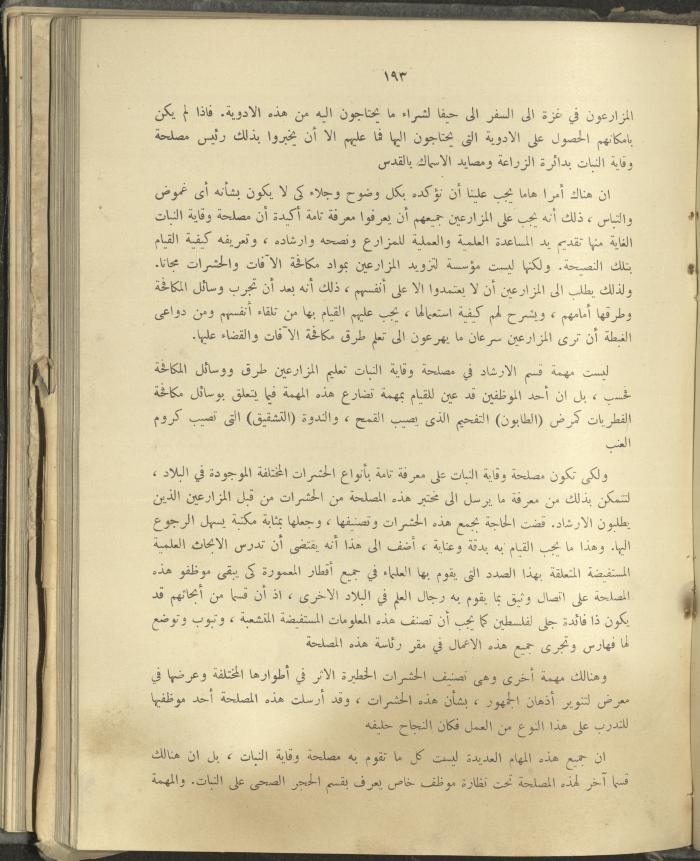 ١٩٣
المزارعون في غزة الى السفر الى حيفا لشراء ما يحتاجون اليه من هذه الادوية. فاذا لم يكن
بامكانهم الحصول على الادوية التى يحتاجون اليها فما عليهم الا أن يخبروا بذلك رئيس مصلحة
وقاية النبات بدائرة الزراعة ومصايد الاسماك بالقدس
ان هناك أمرا هاما يجب علينا أن نؤكده بكل وضوح وجلاء كى لا يكون بشأنه أى غموض
والتباس ، ذلك أنه يجب على المزارعين جميعهم أن يعرفوا معرفة تامة أكيدة أن مصلحة وقاية النبات
الغاية منها تقديم يد المساعدة العلمية والعملية للمزارع ونصحه وارشاده ، وتعريفه كيفية القيام
بتلك النصيحة. ولكنها ليست مؤسسة لتزويد المزارعين بمواد مكافحة الآفات والحشرات مجانا.
ولذلك يطلب الى المزارعين أن لا يعتمدوا الا على أنفسهم ، ذلك أنه بعد أن تجرب وسائل المكافحة
وطرقها أمامهم ، ويشرح لهم كيفية استعمالها ، يجب عليهم القيام بها من تلقاء أنفسهم ومن دواعى
الغبطة أن ترى المزارعين سرعان ما يهرعون الى تعلم طرق مكافحة الآفات والقضاء عليها.
ليست مهمة قسم الارشاد في مصلحة وقاية النبات تعليم المزارعين طرق ووسائل المكافحة
فحسب ، بل ان أحد الموظفين قد عين للقيام بمهمة تضارع هذه المهمة فيما يتعلق بوسائل مكافحة
الفطريات كمرض (الطابون) التفحيم الذى يصيب القمح ، والندوة (التشقيق) التى تصيب كروم
العنب
ولكى تكون مصلحة وقاية النبات على معرفة تامة بأنواع الحشرات المختلفة الموجودة في البلاد ،
لتتمكن بذلك من معرفة ما يرسل الى مختبر هذه المصلحة من الحشرات من قبل المزارعين الذين
يطلبون الارشاد. قضت الحاجة بجمع هذه الحشرات وتصنيفها ، وجعلها بمثابة مكتبة يسهل الرجوع
اليها. وهذا ما يجب القيام به بدقة وعناية ، أضف الى هذا أنه يقتضى أن تدرس الابحاث العلمية
المستفيضة المتعلقة بهذا الصدد التى يقوم بها العلماء في جميع أقطار المعمورة كى يبقى موظفو هذه
المصلحة على اتصال وثيق بما يقوم به رجال العلم في البلاد الاخرى ، اذ أن قسما من أبحاثهم قد
يكون ذا فائدة جلى لفلسطين كما يجب أن تصنف هذه المعلومات المستفيضة المتشعبة ، وتبوب وتوضع
لها فهارس وتجرى جميع هذه الاعمال في مقر رئاسة هذه المصلحة
وهنالك مهمة أخرى وهى تصنيف الحشرات الخطيرة الاثر في أطوارها المختلفة وعرضها في
معرض لتنوير أذهان الجمهور ، بشأن هذه الحشرات ، وقد أرسلت هذه المصلحة أحد موظفيها
للتدرب على هذا النوع من العمل فكان النجاح حليفه
ان جميع هذه المهام العديدة ليست كل ما تقوم به مصلحة وقاية النبات ، بل ان هنالك
قسما آخر لهذه المصلحة تحت نظارة موظف خاص يعرف بقسم الحجر الصحى على النبات. والمهمة